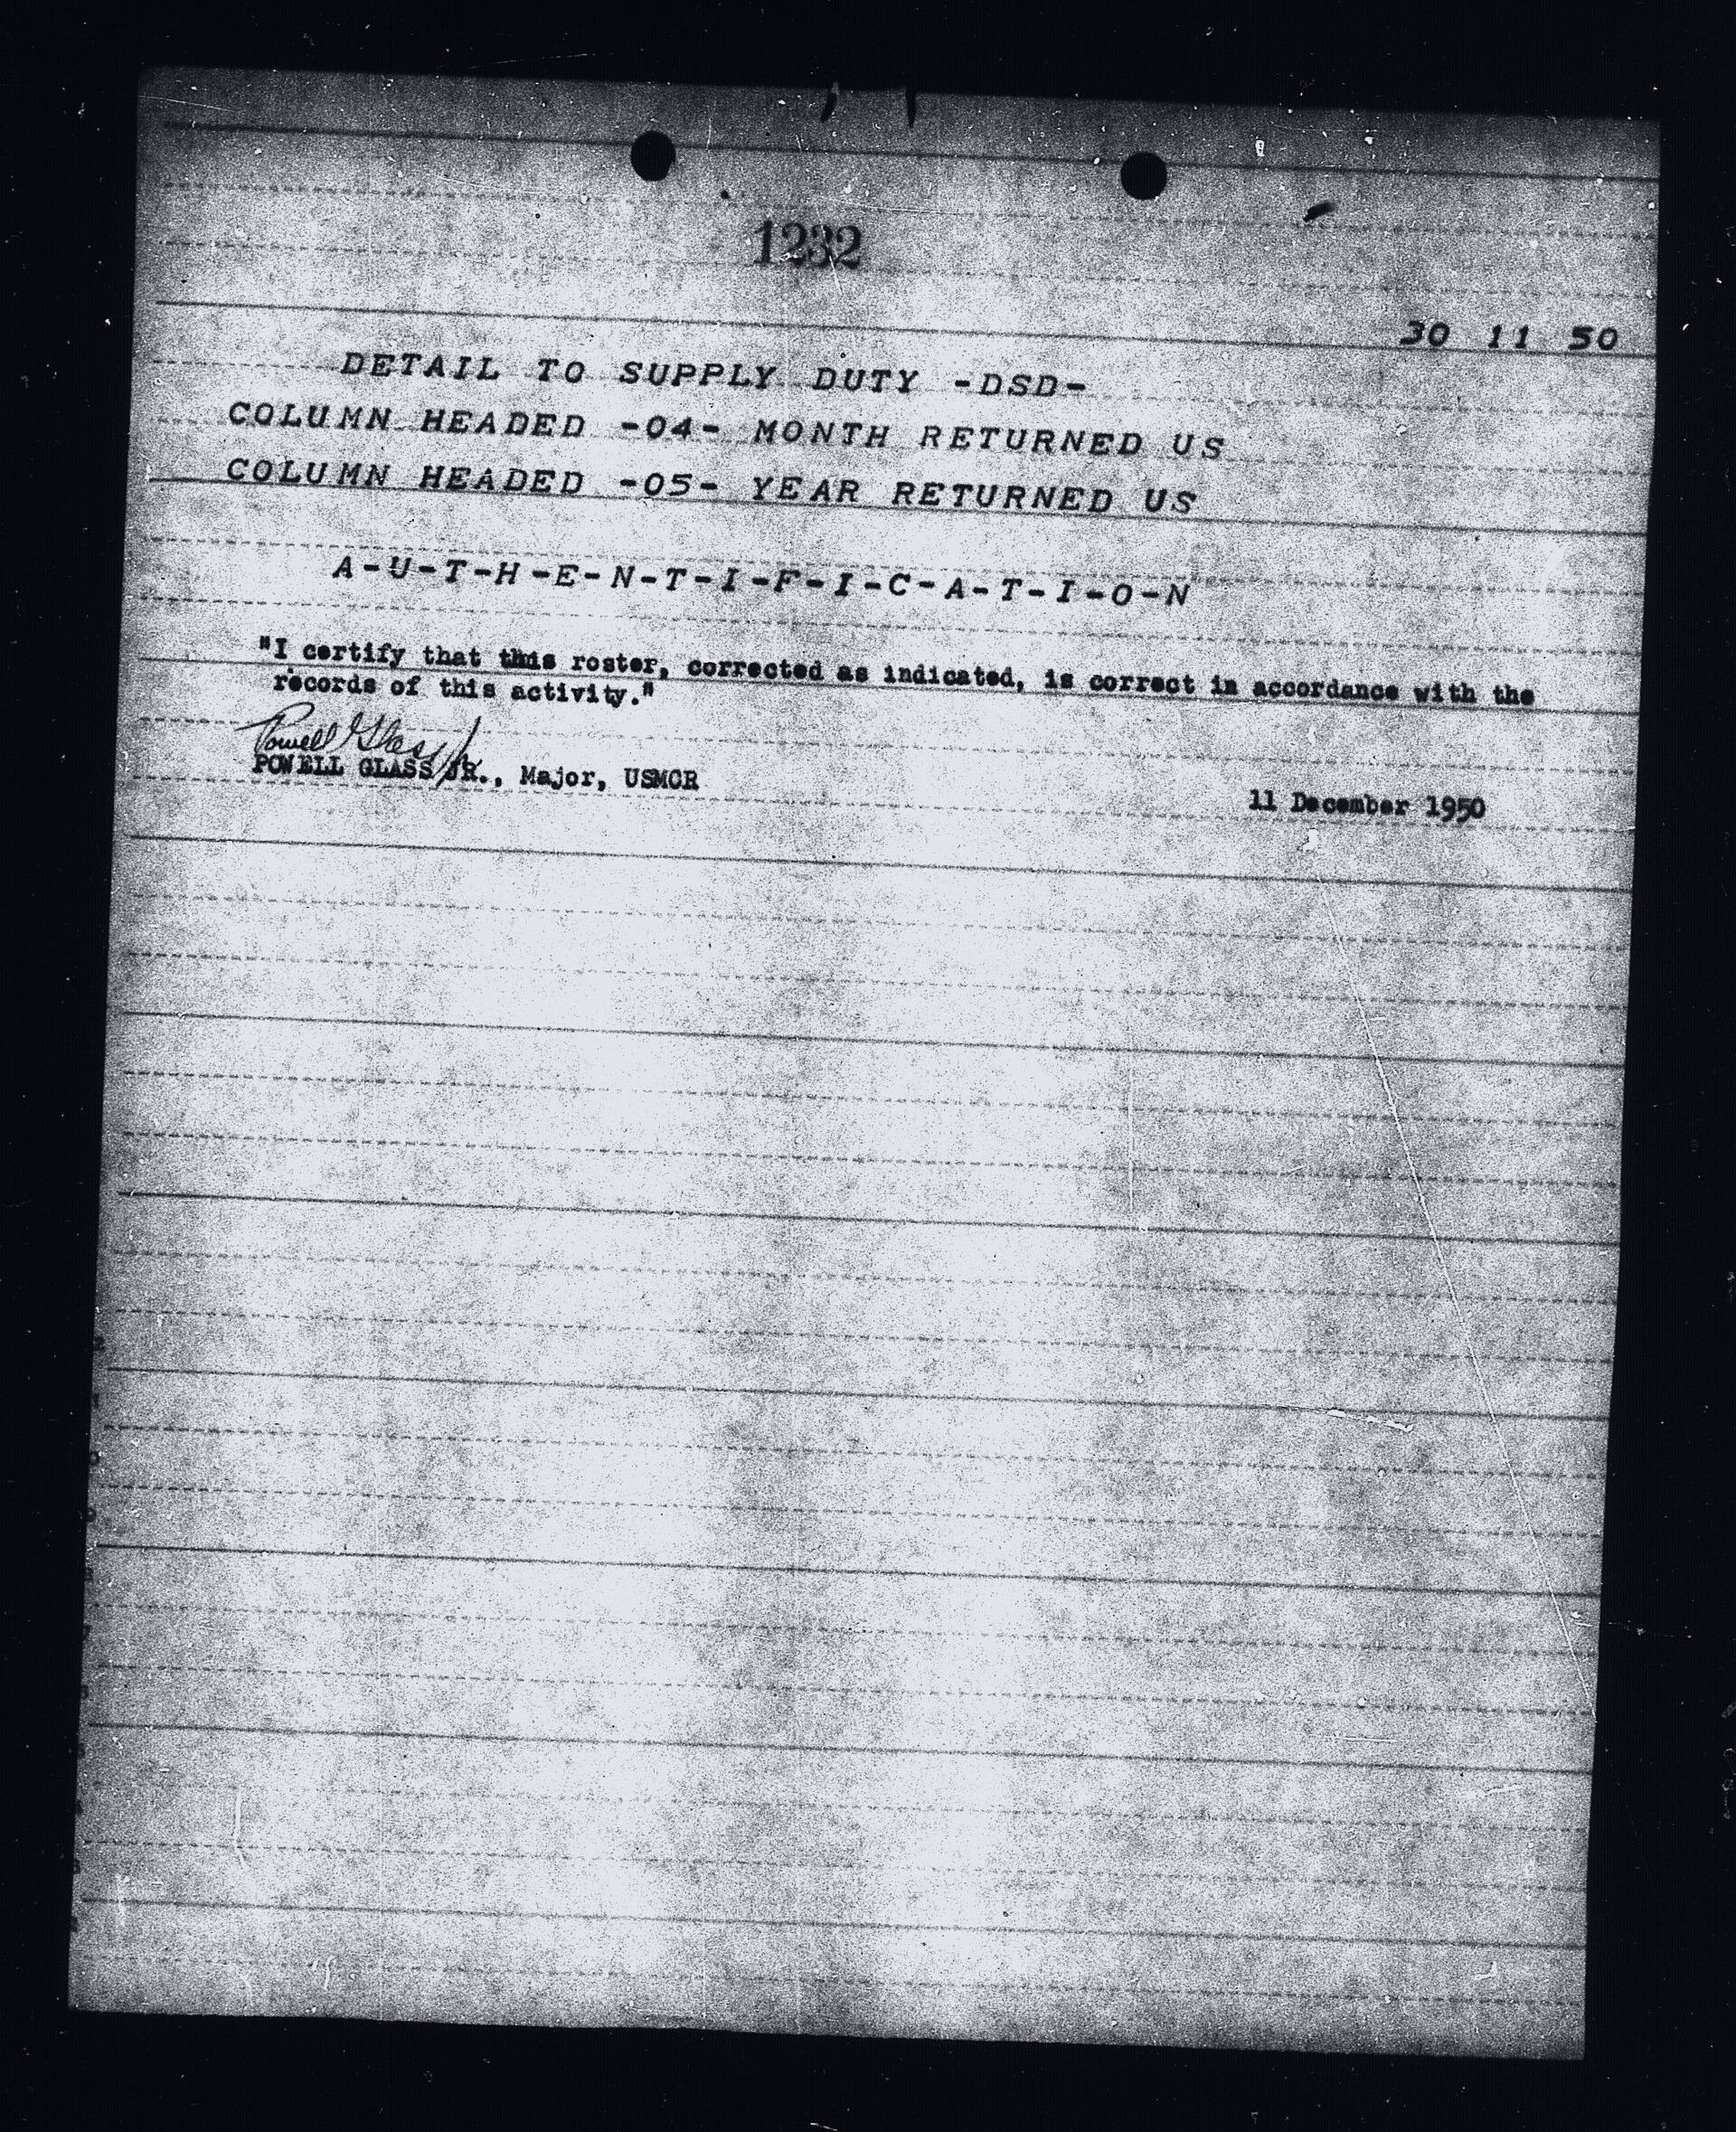 1232
30 11 50
DETAIL TO SUPPLY DUTY -DSD-
COLUMN HEADED -04- MONTH RETURNED US
COLUMN HEADED -05- YEAR RETURNED US
A-U-T-H-E-N-T-I-F-I-C-A-T-I-O-N
"I certify that this roster, corrected as indicated, is correct in accordance with the
records of this activity."
Powell Glass Jr
POWELL GLASS JR., Major, USMCR
11 December 1950